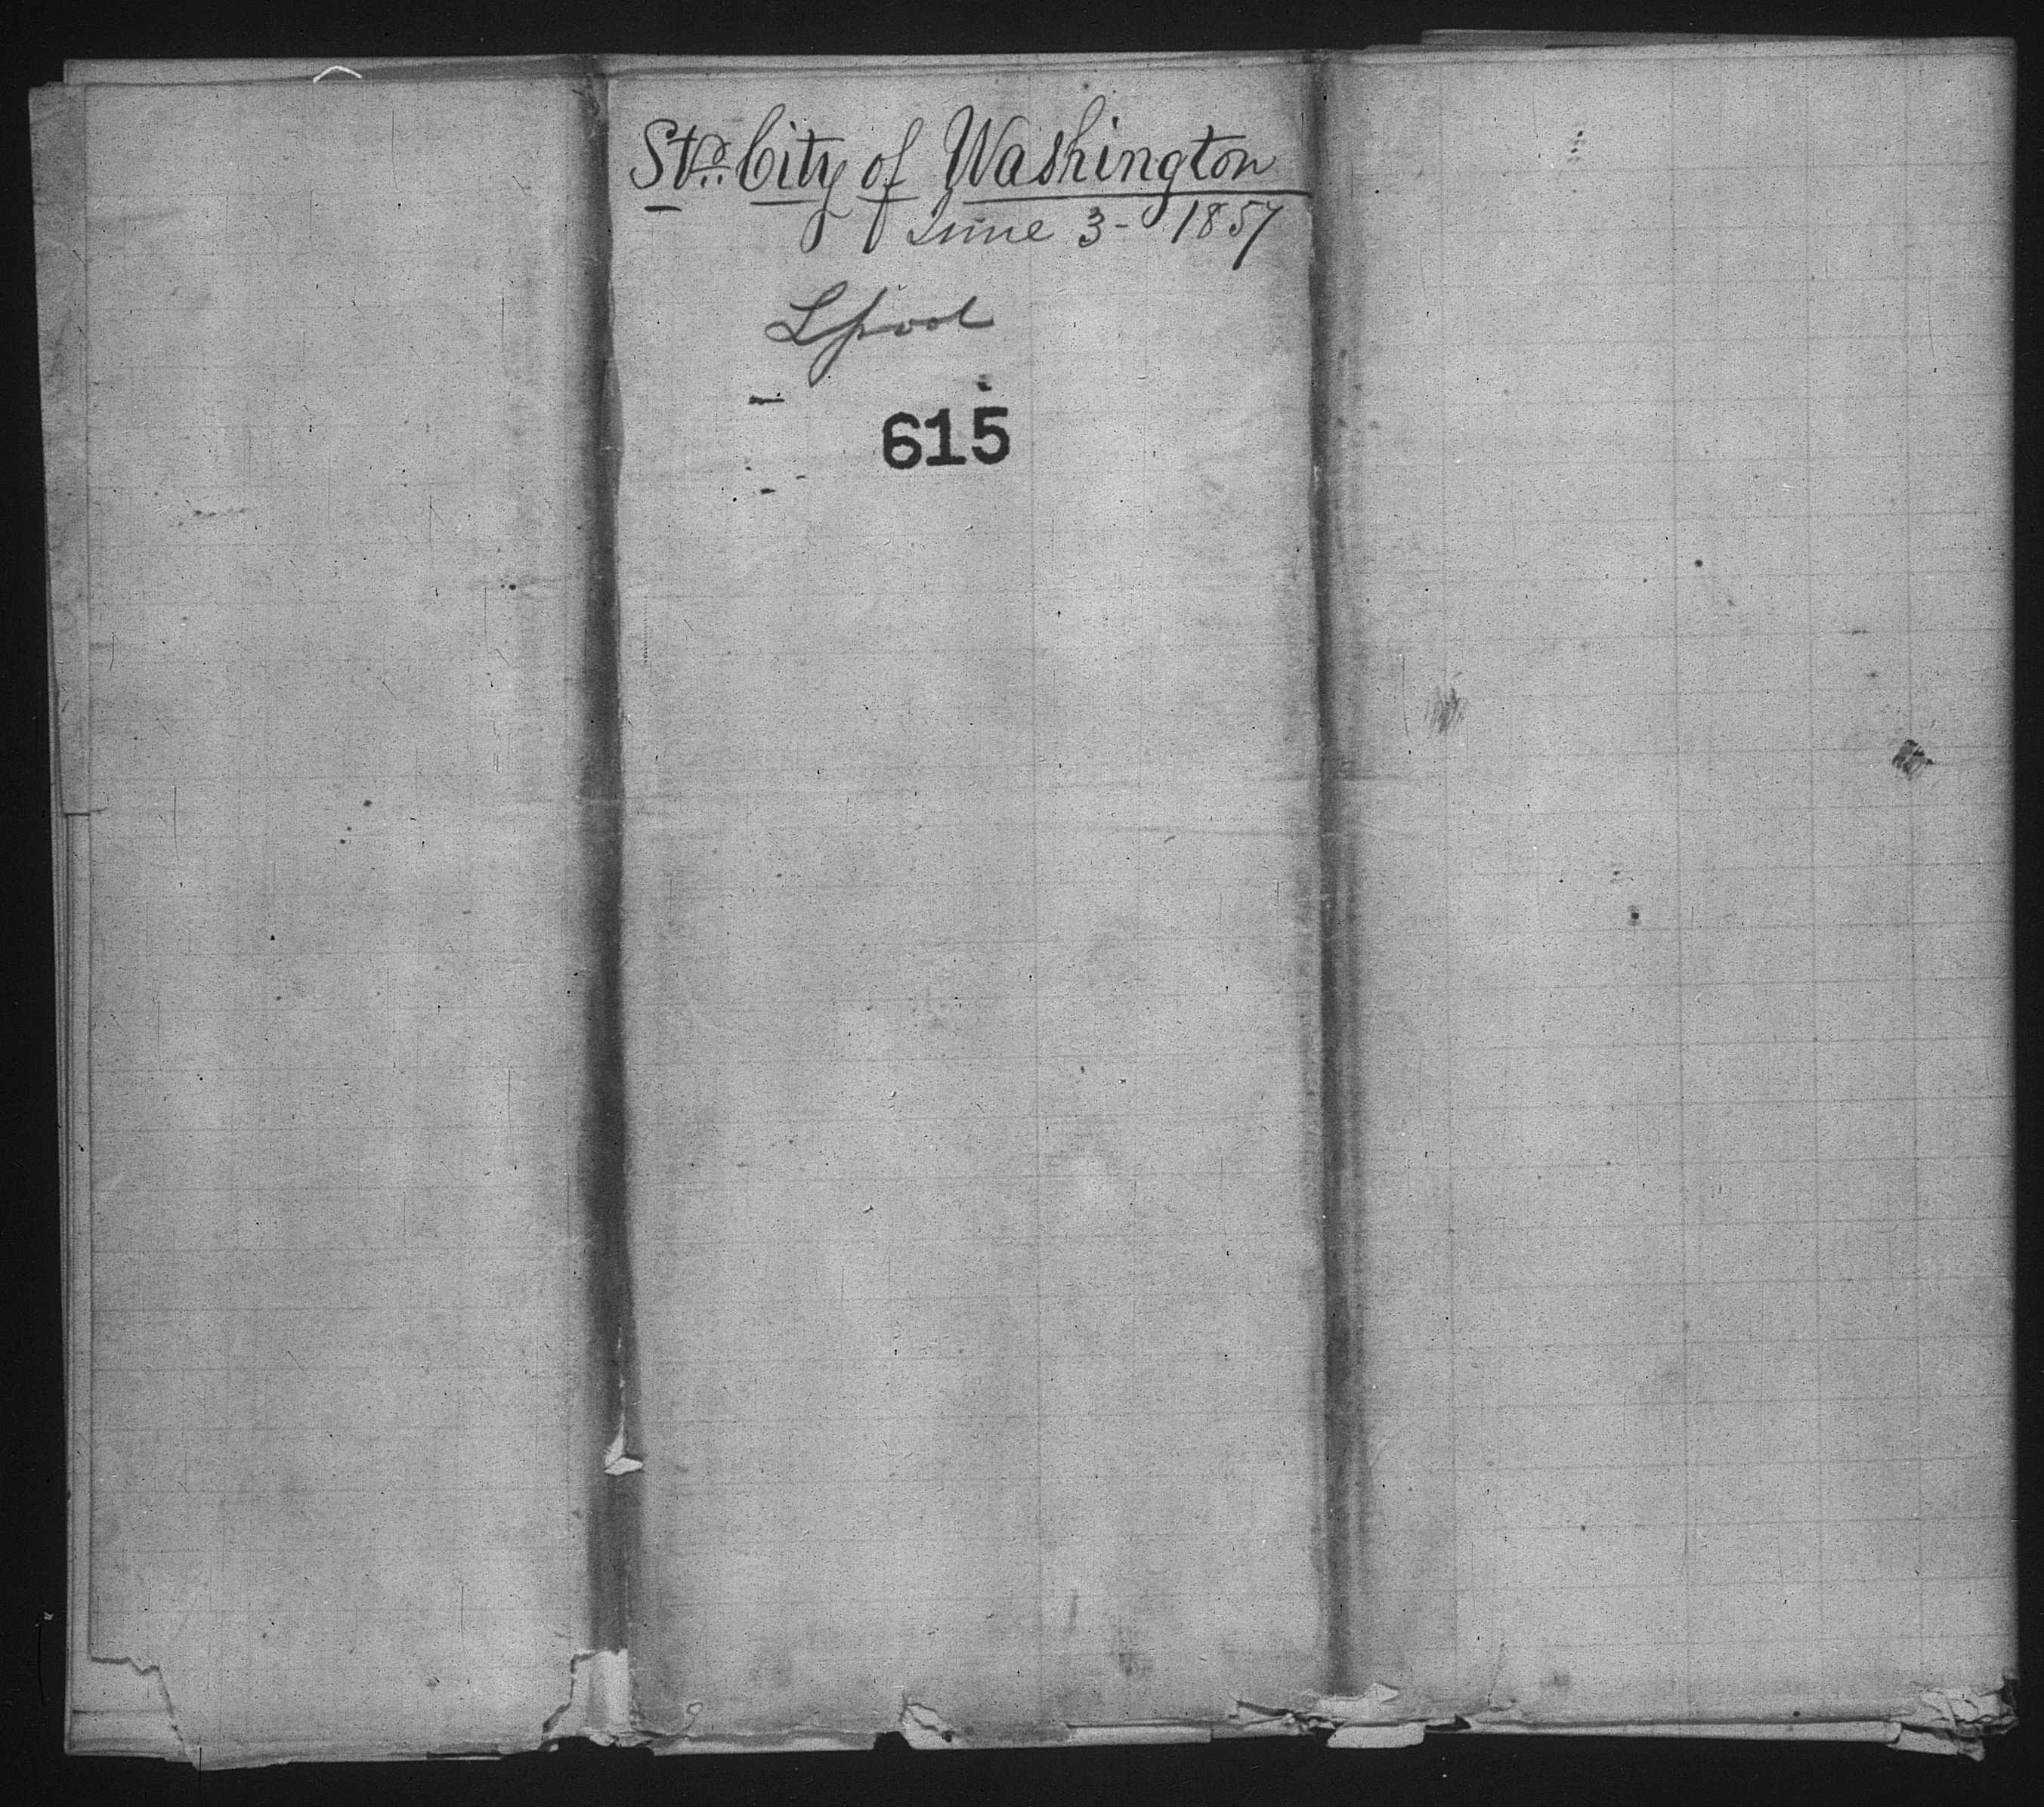 Str. City of Washington
June 3 - 1857
Lpool
615